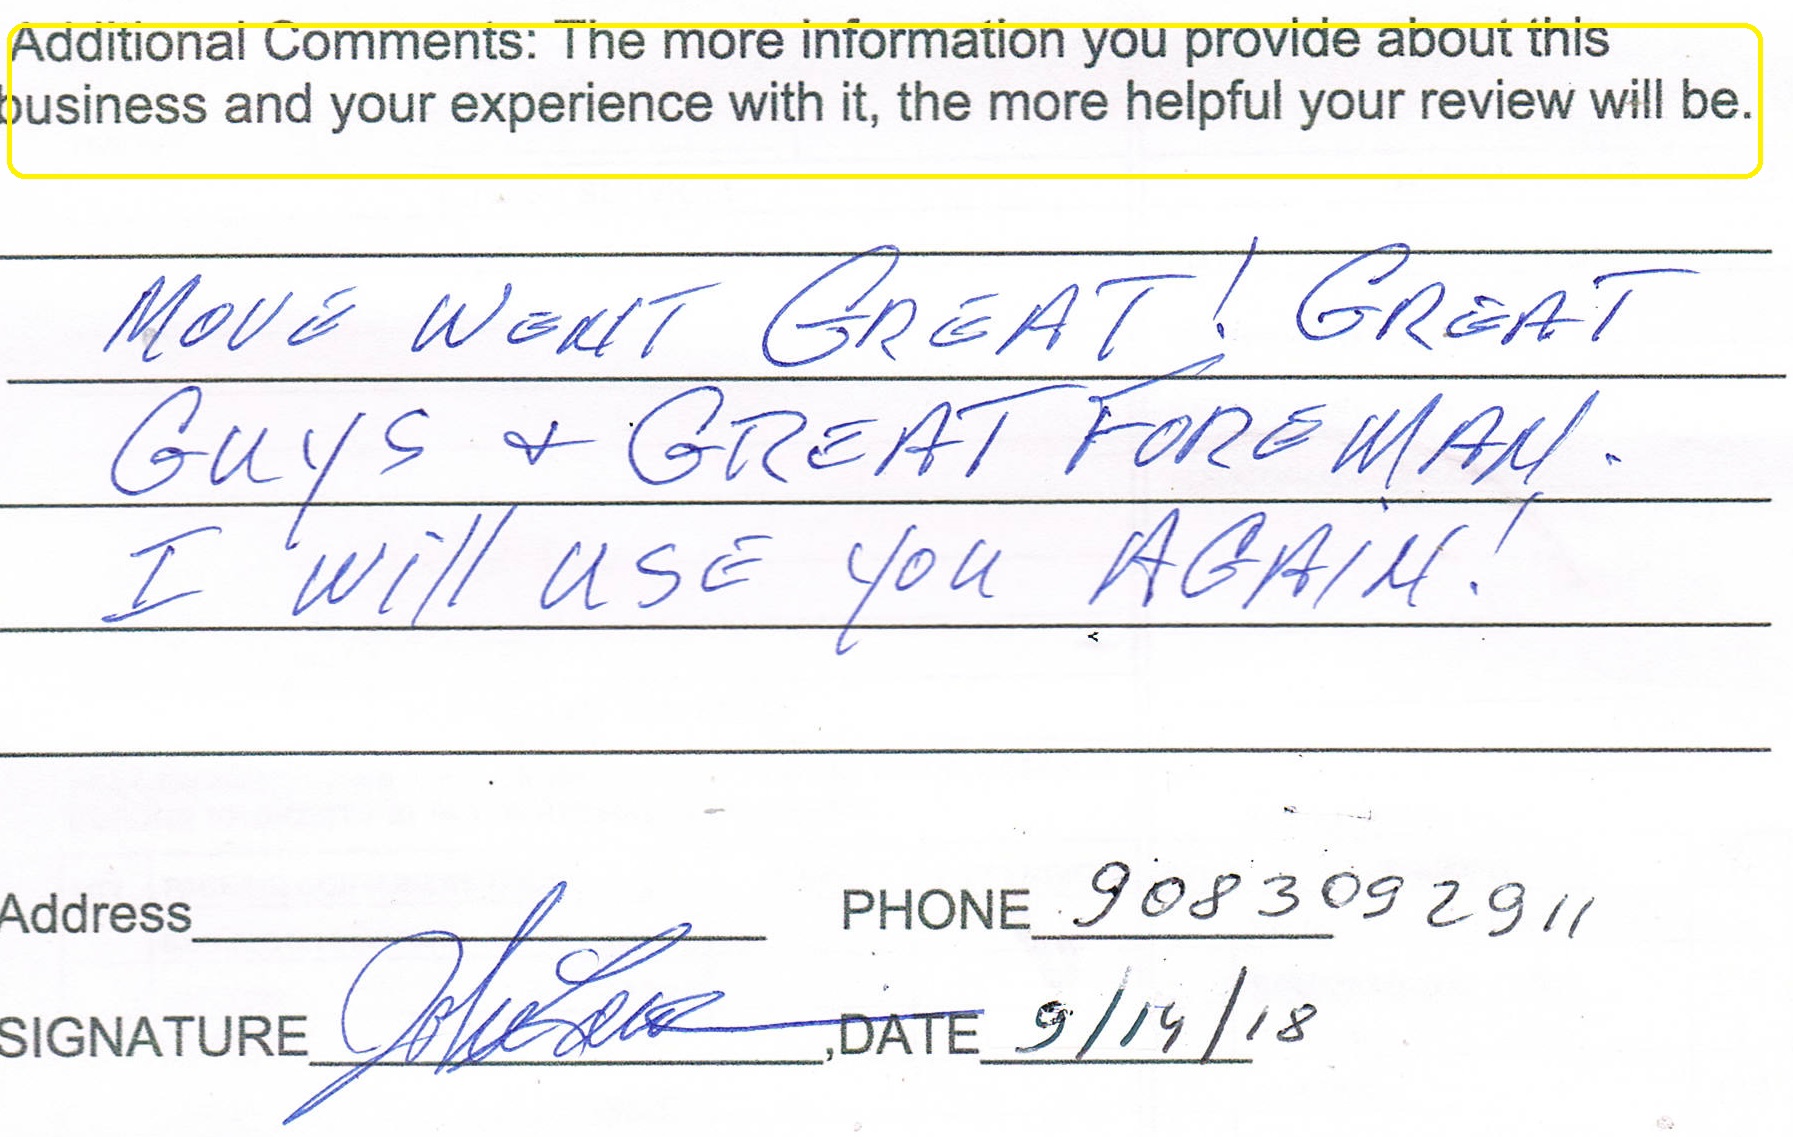 Additional Comments: The more information you provide about this
business and your experience with it, the more helpful your review will be.
MOVE WENT GREAT! GREAT
GUYS & GREAT FOREMAN.
I Will USE YOU AGAIN!
Address PHONE 9083092911
SIGNATURE ,DATE 9/14/18